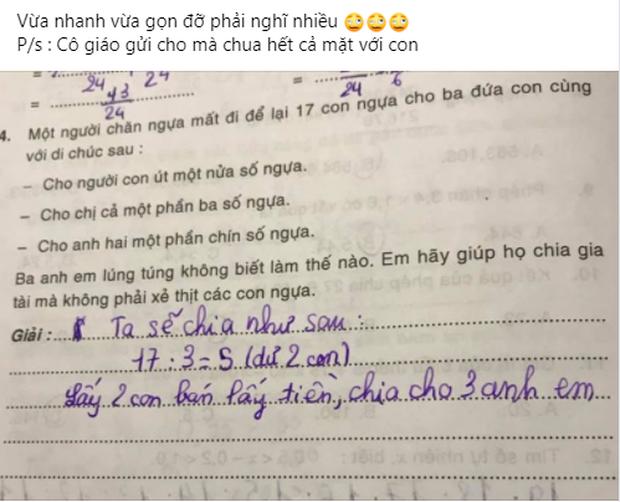 Vừa nhanh vừa gọn đỡ phải nghĩ nhiều 🙄🙄🙄
P/s : Cô giáo gửi cho mà chua hết cả mặt với con
24 24
= 43 =
24 24 6
4. Một người chăn ngựa mất đi để lại 17 con ngựa cho ba đứa con cùng
với di chúc sau :
– Cho người con út một nửa số ngựa.
– Cho chị cả một phần ba số ngựa.
– Cho anh hai một phần chín số ngựa.
Ba anh em lúng túng không biết làm thế nào. Em hãy giúp họ chia gia
tài mà không phải xẻ thịt các con ngựa.
Giải : Ta sẽ chia như sau :
17 : 3 = 5 (dư 2 con)
Lấy 2 con bán lấy tiền, chia cho 3 anh em